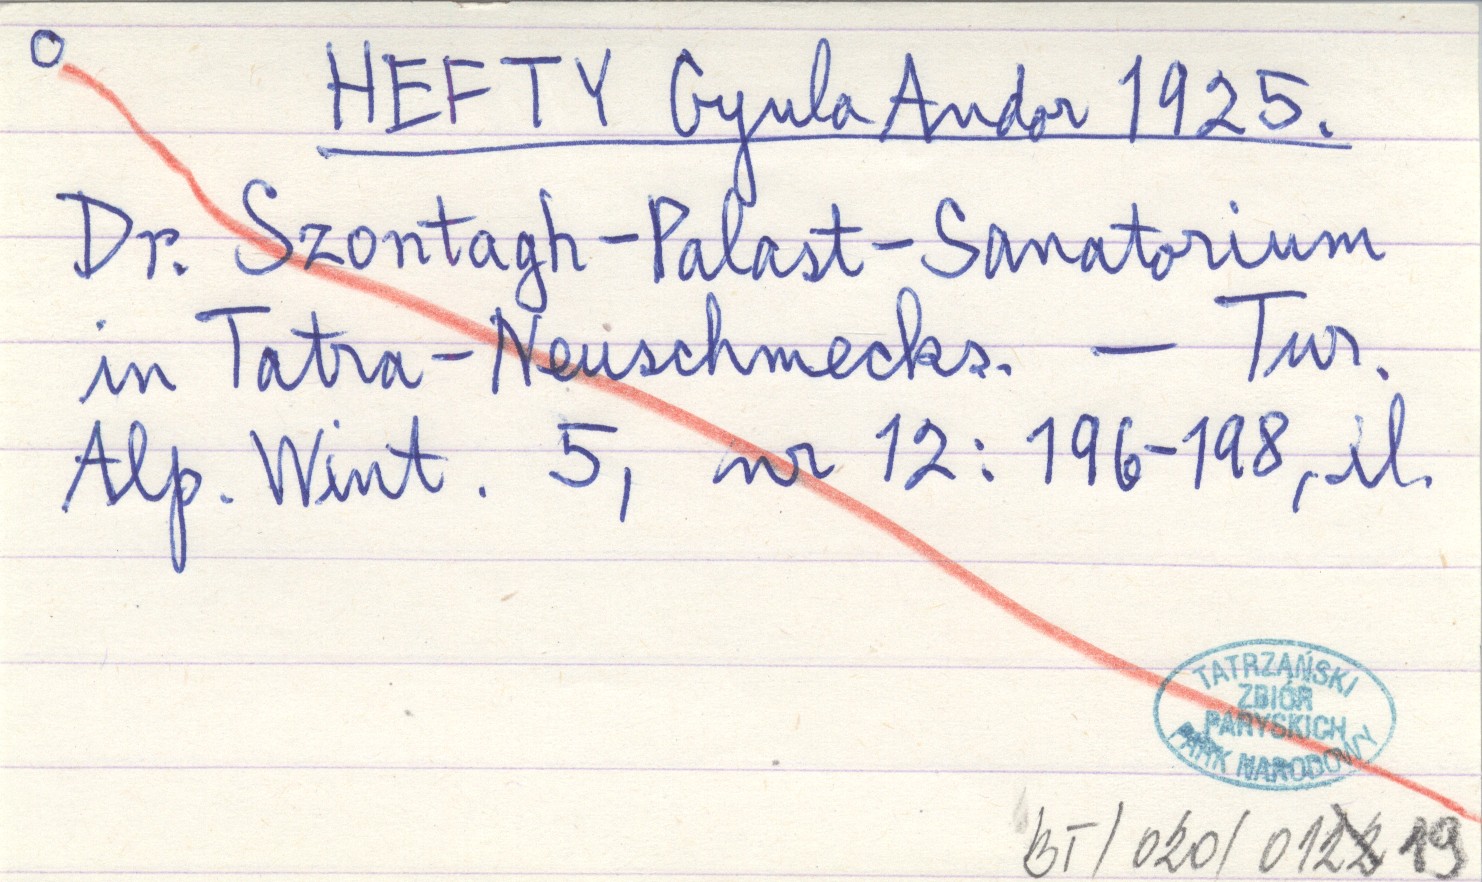 O
HEFTY Gyula Andor 1925.
Dr. Szontagh-Palast-Sanatorium
in Tatra-Neuschmecks. — Tur.
Alp. Wint. 5, nr 12: 196-198, il.
TATRZAŃSKI
ZBIÓR
PARYSKICH
PARK NARODOWY
BT/020/012 19